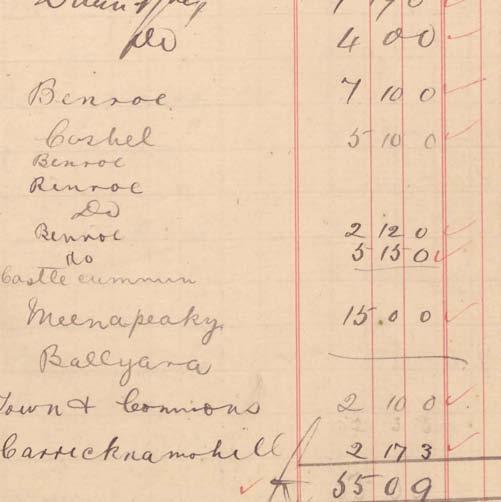 Do 4 0 0
Benroe 7 10 0
Cashel 5 10 0
Benroe
Benroe
Do
Benroe 2 12 0
do 5 15 0
Castlecummin
Meenapeaky 15 0 0
Ballyara
Town & Commons 2 10 0
Carricknamohill 2 17 3
55 0 9